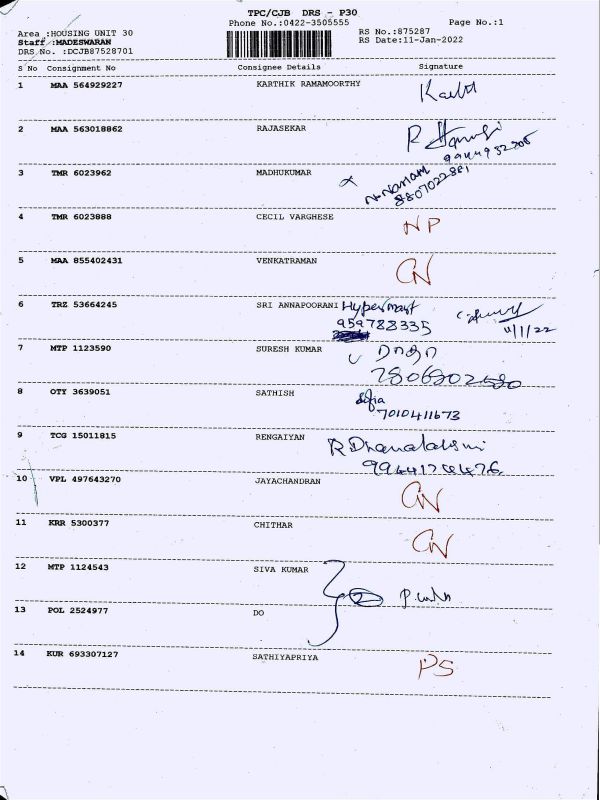 TPC/CJB DRS - P30
Phone No.:0422-3505555
Page No.:1
Area :HOUSING UNIT 30
Staff :MADESWARAN
DRS No. :DCJB87528701
RS No.:875287
RS Date:11-Jan-2022
S No Consignment No Consignee Details Signature
1 MAA 564929227 KARTHIK RAMAMOORTHY
2 MAA 563018862 RAJASEKAR
3 TMR 6023962 MADHUKUMAR
8807022881
4 TMR 6023888 CECIL VARGHESE NP
5 MAA 855402431 VENKATRAMAN CN
6 TRZ 53664245 SRI ANNAPOORANI Hypermart
959788335
11/1/22
7 MTP 1123590 SURESH KUMAR
8 OTY 3639051 SATHISH Sofia
7010411673
9 TCG 15011815 RENGAIYAN R Dhanalakshmi
10 VPL 497643270 JAYACHANDRAN CN
11 KRR 5300377 CHITHAR CN
12 MTP 1124543 SIVA KUMAR
2
13 POL 2524977 DO
14 KUR 693307127 SATHIYAPRIYA PS